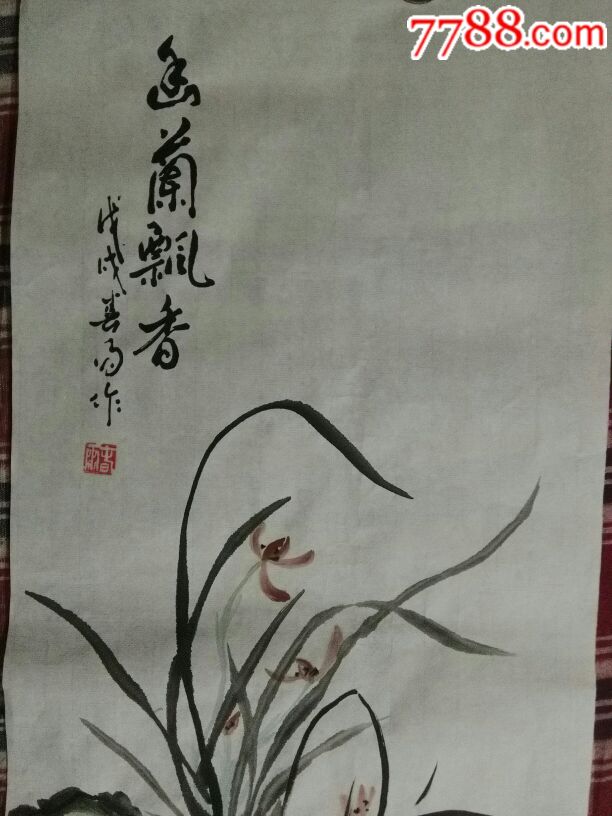 7788.com
幽兰飘香
戊戌春
作